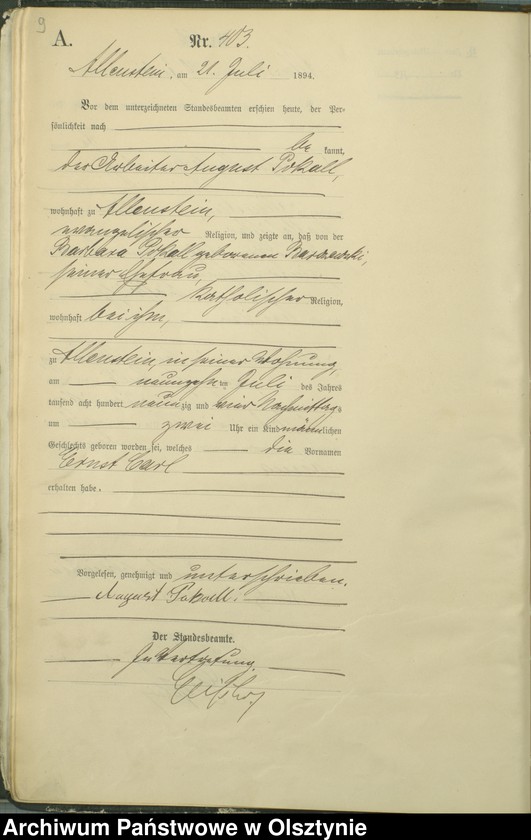 9
A.
Nr. 403.
Allenstein, am 21. Juli 1894.
Vor dem unterzeichneten Standesbeamten erschien heute, der Per-
sönlichkeit nach
be kannt,
der Arbeiter August Pokall,
wohnhaft zu Allenstein,
evangelischer Religion, und zeigte an, daß von der
Barbara Pokall geborenen Barczewski,
seiner Ehefrau,
katholischer Religion,
wohnhaft bei ihm,
zu Allenstein, in seiner Wohnung,
am neunzehnten Juli des Jahres
tausend acht hundert neunzig und vier Nachmittags
um zwei Uhr ein Kind männlichen
Geschlechts geboren worden sei, welches die Vornamen
Ernst Carl
erhalten habe.
Vorgelesen, genehmigt und unterschrieben.
August Pokall.
Der Standesbeamte.
In Vertretung
Archiwum Państwowe w Olsztynie